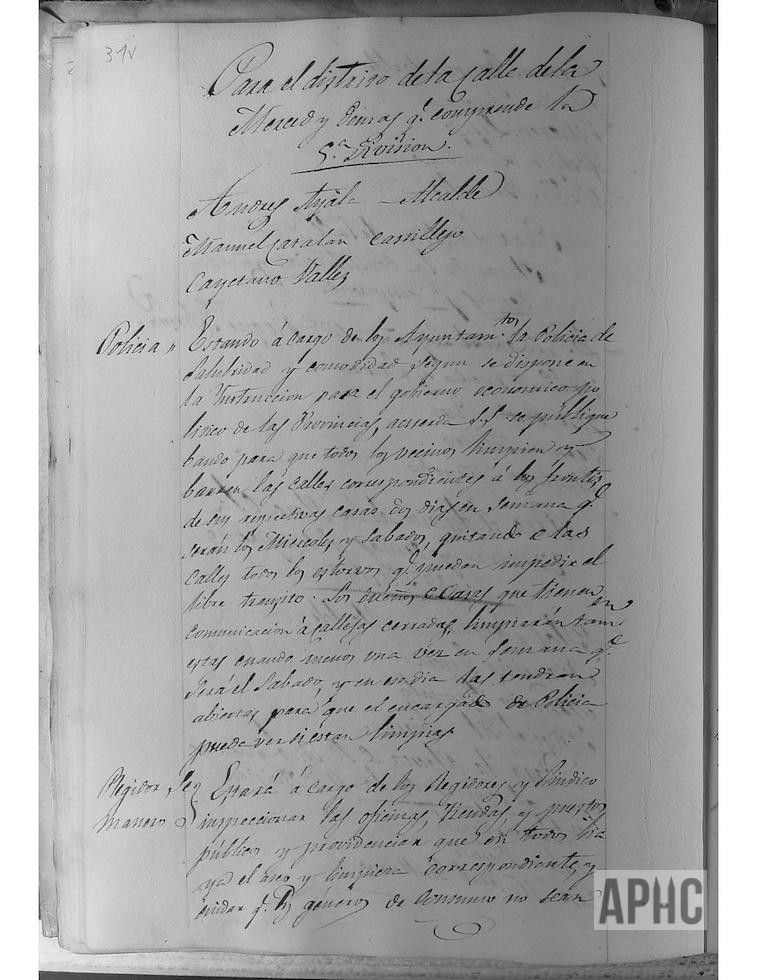 31v
Para el distrito de la Calle de la
Merced y demas q.e comprende la
5.a Division.
Andres Ayala - Alcalde
Manuel Catalan Castillejo
Cayetano Valles
Policia " Estando á cargo de los Ayuntam.tos la Policia de
salubridad y comodidad segun se dispone en
la Instruccion para el gobierno economico po
litico de las Provincias, acuerda se publique
bando para que todos los vecinos limpien y
barran las calles correspondientes á los frentes
de sus respectivas casas dos dias en semana q.e
serán los Miercoles y Sabados, quitando e las
calles todos los estorvos q.e puedan impedir el
libre transito. Los dueños e Casas que tienen
comunicacion á callejas cerradas, limpiarán tam.en
estas cuando menos una vez en semana q.e
será el Sabado, y en ese dia las tendran
abiertas para que el encargado de Policia
pueda ver si éstan limpias.
Regidor Se
manero
Estará á cargo de los Regidores y Sindico
inspeccionar las oficinas, tiendas, y puestos
públicos y providenciar que en todos ha
ya el aseo y limpieza correspondiente, y
cuidar q.e los géneros de consumo no sean
APHC